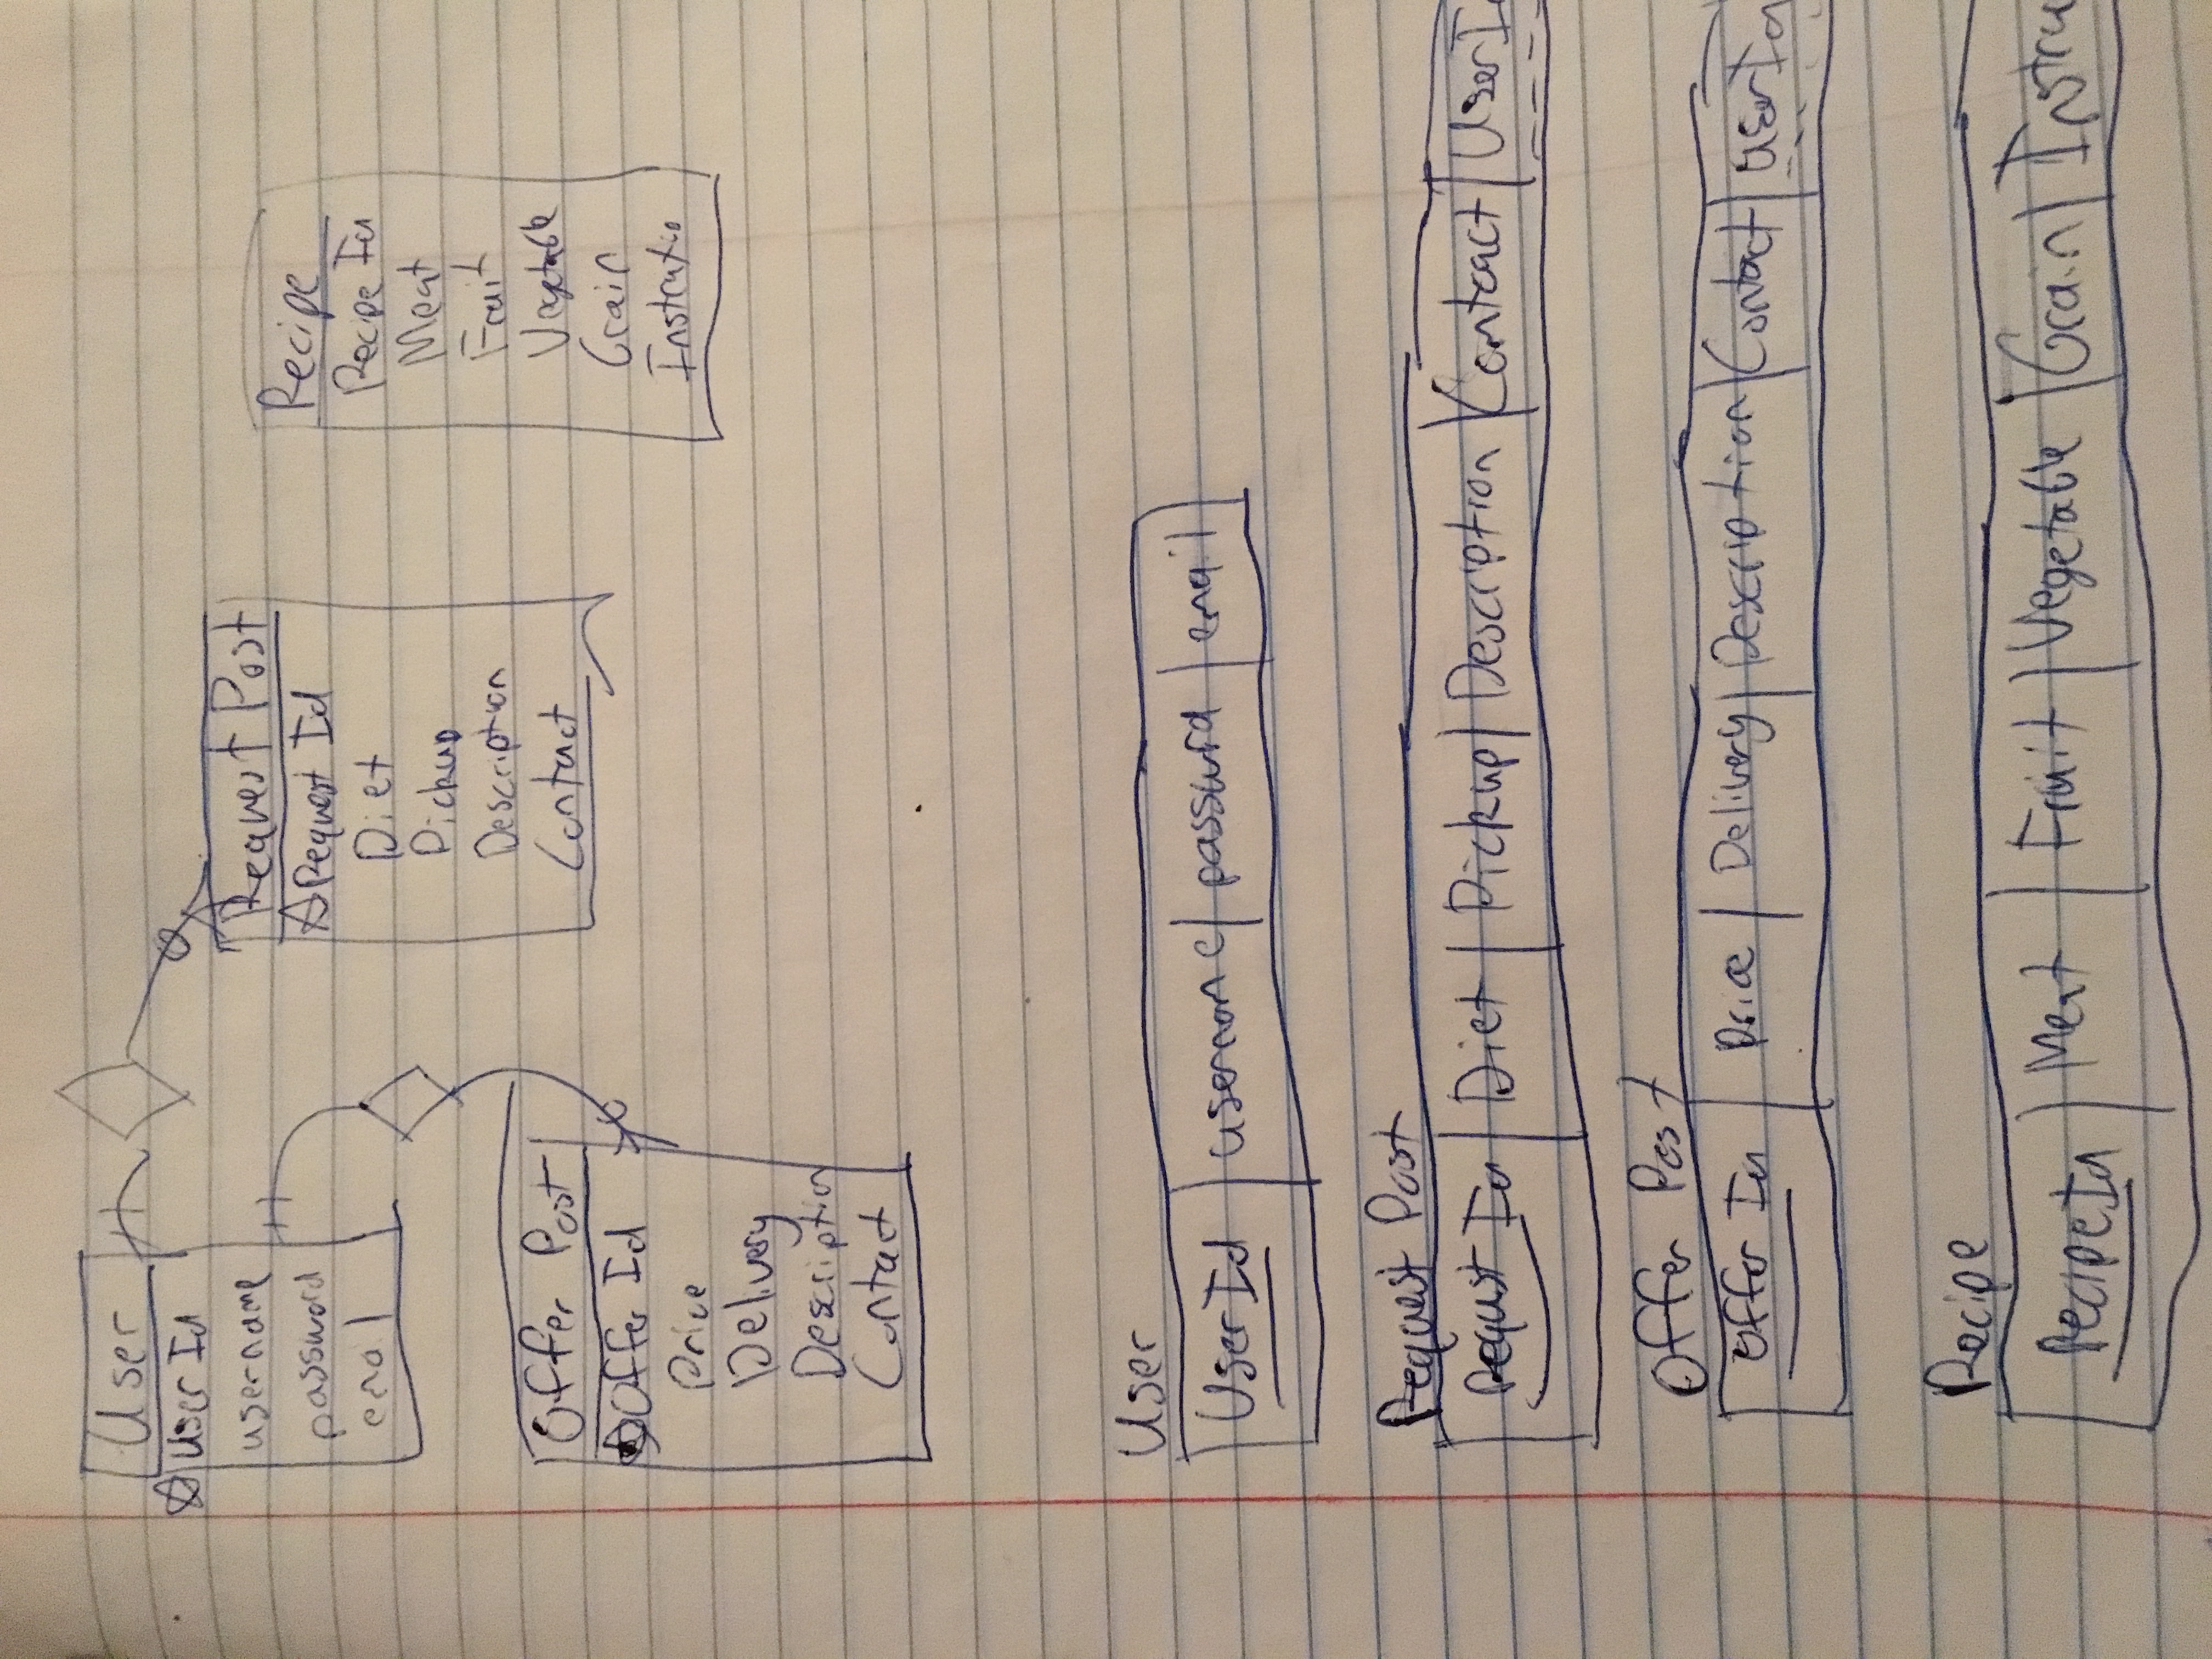 User
User Id
username
password
email
Request Post
Request Id
Diet
Pickup
Description
Contact
Recipe
Recipe Id
Meat
Fruit
Vegetable
Grain
Instructio
Offer Post
Offer Id
Price
Delivery
Description
Contact
User
User Id username password email
Request Post
Request Id Diet Pickup Description Contact User I
Offer Post
Offer Id Price Delivery Description Contact User Id
Recipe
Recipe Id Meat Fruit Vegetable Grain Instru